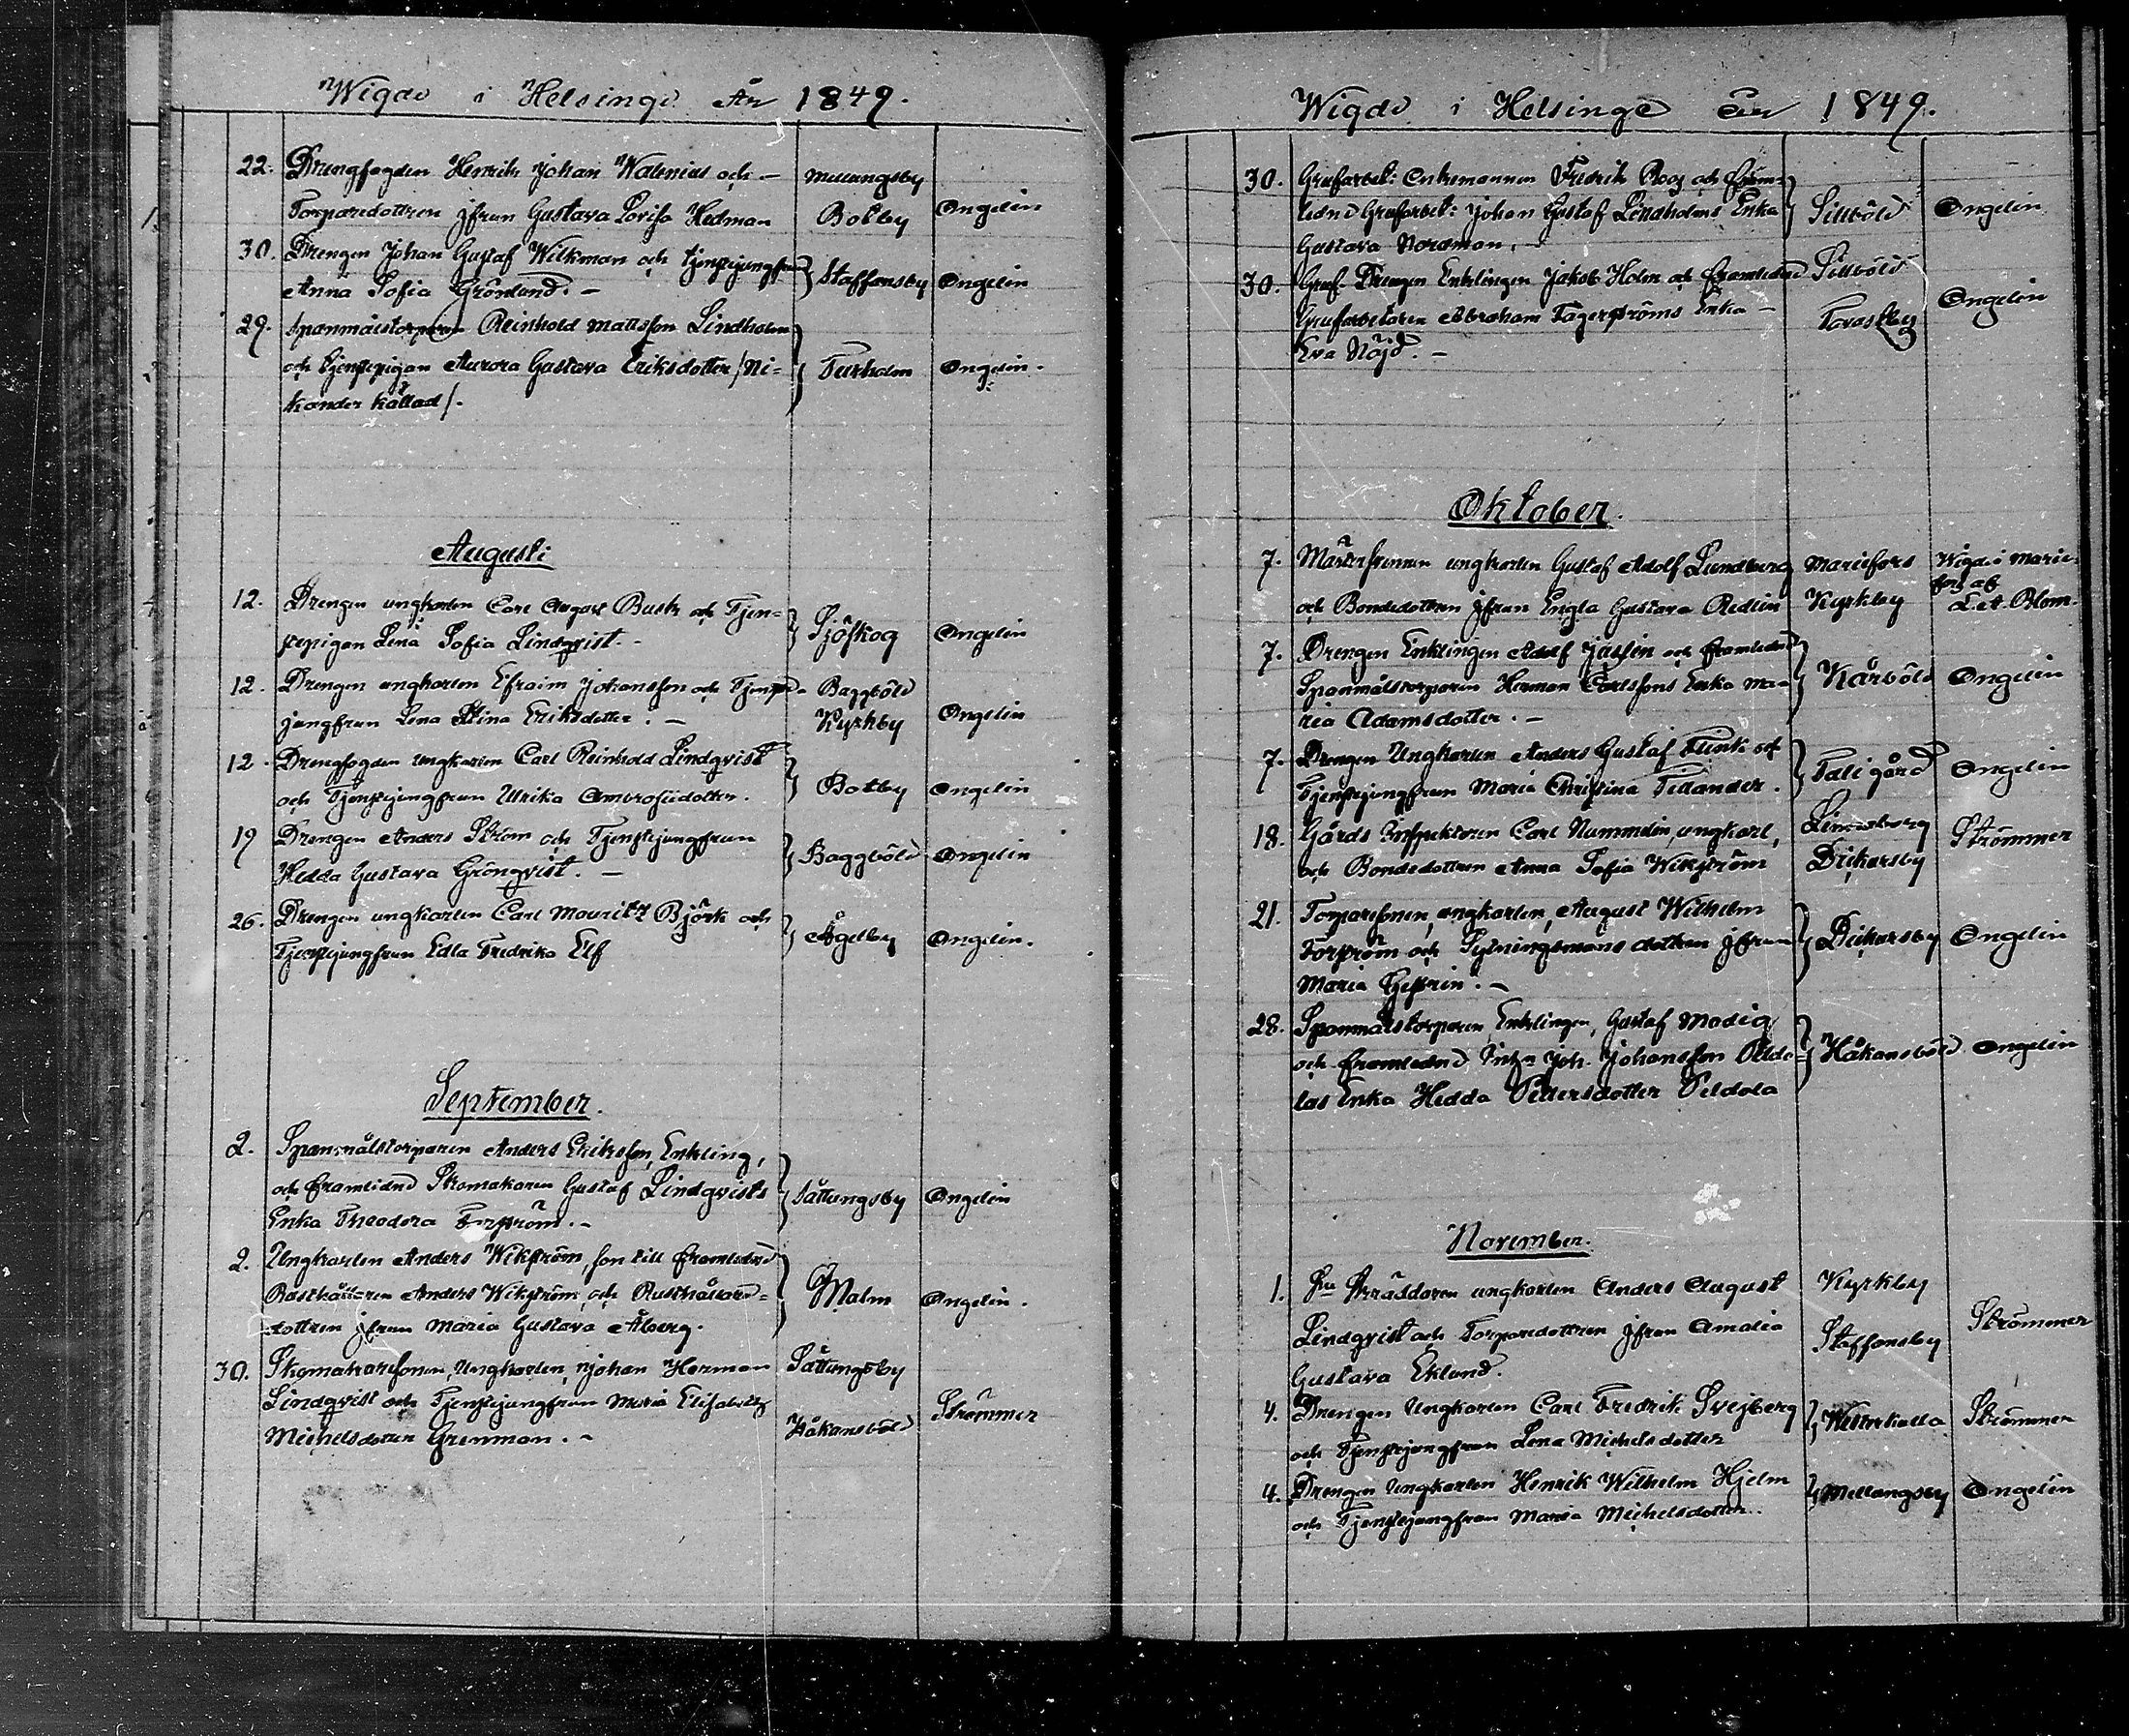 Wigde i Helsinge År 1849.
22. Drengfogden Henrik Johan Walenius och – Mellungsby
Torparedottren jfrun Gustava Lovisa Hedman Botby Ongelin
30. Drengen Johan Gustaf Wilkman och tjenstejungfrun
Anna Sofia Grönlund. – Staffansby Ongelin
29. Spanmålstorparen Reinhold Mattsson Lindholm
och tjenstepigan Aurora Gustava Eriksdotter /Ni- Turholm Ongelin.
kander kallad/.
Augusti
12. Drengen ungkarlen Carl August Busk och Tjen-
stepigan Lena Sofia Lindqvist. – Sjöskog Ongelin
12. Drengen ungkarlen Efraim Johansson och Tjenste- Baggböle
jungfrun Lena Stina Eriksdotter. – Kyrkby Ongelin
12. Drengfogden ungkarlen Carl Reinhold Lindqvist
och Tjenstejungfrun Ulrika Ambrosiidotter. Botby Ongelin
19 Drengen Anders Ström och Tjenstejungfrun
Hedda Gustava Grönqvist. – Baggböle Ongelin
26. Drengen ungkarlen Carl Mauritz Björk och
Tjenstejungfrun Edla Fredrika Elf Ågelby Ongelin.
September.
2. Spanmålstorparen Anders Eriksson, Enkling,
och framlidne Skomakaren Gustaf Lindqvists Sottungsby Ongelin
Enka Theodora Forström. –
2. Ungkarlen Anders Wikström, son till framlidne
Rusthållaren Anders Wikström, och Rusthållare- Malm Ongelin.
dottren jfrun Maria Gustava Åberg.
30. Skomakaresonen, Ungkarlen, Johan Herman Sottungsby
Lindqvist och Tjenstejungfrun Maria Elisabeth Strömmer
Michelsdotter Grenman. – Håkansböle
Wigde i Helsinge År 1849.
30. Grufarbet: Enkemannen Fredrik Roos och fram-
lidne Grufarbet: Johan Gustaf Lindholms Enka Sillböle Ongelin
Gustava Nordman. –
30. Gruf-Drengen Enklingen Jakob Holm och framlidne Sillböle
Grufarbetaren Abraham Fagerströms Enka – Tavastby Ongelin
Eva Nöjd. –
Oktober.
7. Mästersonen ungkarlen Gustaf Adolf Lundberg Mariefors Wigde i Marie-
fors af
och Bondedottren jfrun Engla Gustava Redlin Kyrkby L. et. Blom.
7. Drengen Enklingen Adolf Jassin och framlidne
Spanmålstorparen Herman Carlssons Enka Ma- Kårböle Ongelin
ria Adamsdotter. –
7. Drengen Ungkarlen Anders Gustaf Flink och
Tjenstejungfrun Maria Christina Telander. Tali gård Ongelin
18. Gårds Inspektoren Carl Nummelin, ungkarl, Strömmer
och Bondedottren Anna Sofia Wikström Dickursby
21. Torparesonen, ungkarlen, August Wilhelm
Forström och Fjerdingsmans dottren jfrun Dickursby Ongelin
Maria
28. Spanmålstorparen Enklingen, Gustaf Modig
och framlidne Joh. Johansson Peldo- Håkansböle Ongelin
las Enka Hedda Pettersdotter Peldola
November.
1. Skräddaren ungkarlen Anders August Kyrkby
Lindqvist och Torparedottren jfrun Amalia Strömmer
Gustava Eklund. Staffansby
4. Drengen Ungkarlen Carl Fredrik Svejberg
och Tjenstejungfrun Lena Michelsdotter Westerkulla Strömmer
4. Drengen Ungkarlen Henrik Wilhelm Hjelm
och Tjenstejungfrun Maria Michelsdotter. Mellungsby Ongelin